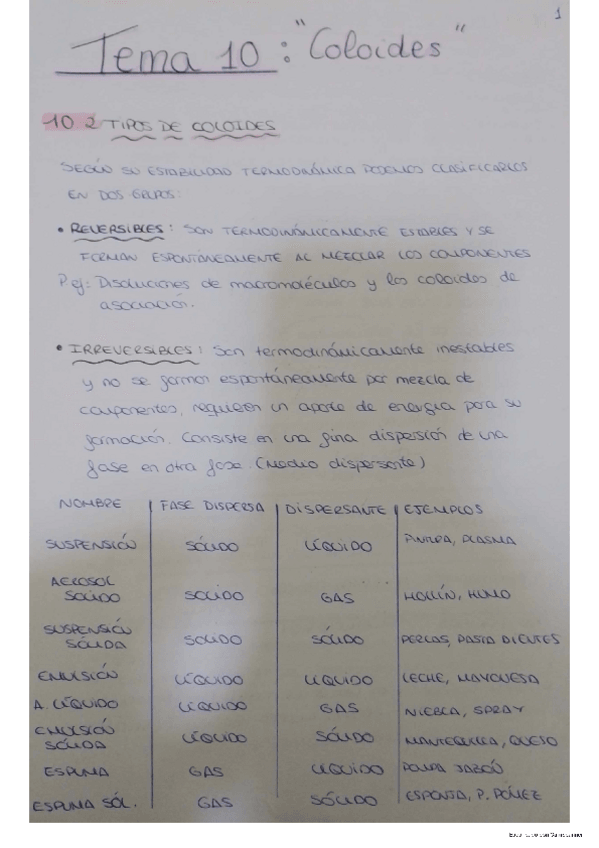 1
Tema 10 : "Coloides"
10 2 TIPOS DE COLOIDES
SEGÚN SU ESTABILIDAD TERMODINÁMICA PODEMOS CLASIFICARLOS
EN DOS GRUPOS:
• REVERSIBLES: SON TERMODINÁMICAMENTE ESTABLES Y SE
FORMAN ESPONTÁNEAMENTE AL MEZCLAR LOS COMPONENTES
P. ej: Disoluciones de macromoléculas y los coloides de
asociación.
• IRREVERSIBLES: Son termodinámicamente inestables
y no se forman espontáneamente por mezcla de
componentes, requieren un aporte de energía para su
formación. Consiste en una fina dispersión de una
fase en otra fase. (Medio dispersante)
NOMBRE | FASE DISPERSA | DISPERSANTE | EJEMPLOS
SUSPENSIÓN SÓLIDO LÍQUIDO PINTURA, PLASMA
AEROSOL
SÓLIDO SÓLIDO GAS HOLLÍN, HUMO
SUSPENSIÓN
SÓLIDA SÓLIDO SÓLIDO PERLAS, PASTA DIENTES
EMULSIÓN LÍQUIDO LÍQUIDO LECHE, MAYONESA
A. LÍQUIDO LÍQUIDO GAS NIEBLA, SPRAY
EMULSIÓN
SÓLIDA LÍQUIDO SÓLIDO MANTEQUILLA, QUESO
ESPUMA GAS LÍQUIDO JABÓN
ESPUMA SÓL. GAS SÓLIDO ESPONJA, P. PÓMEZ